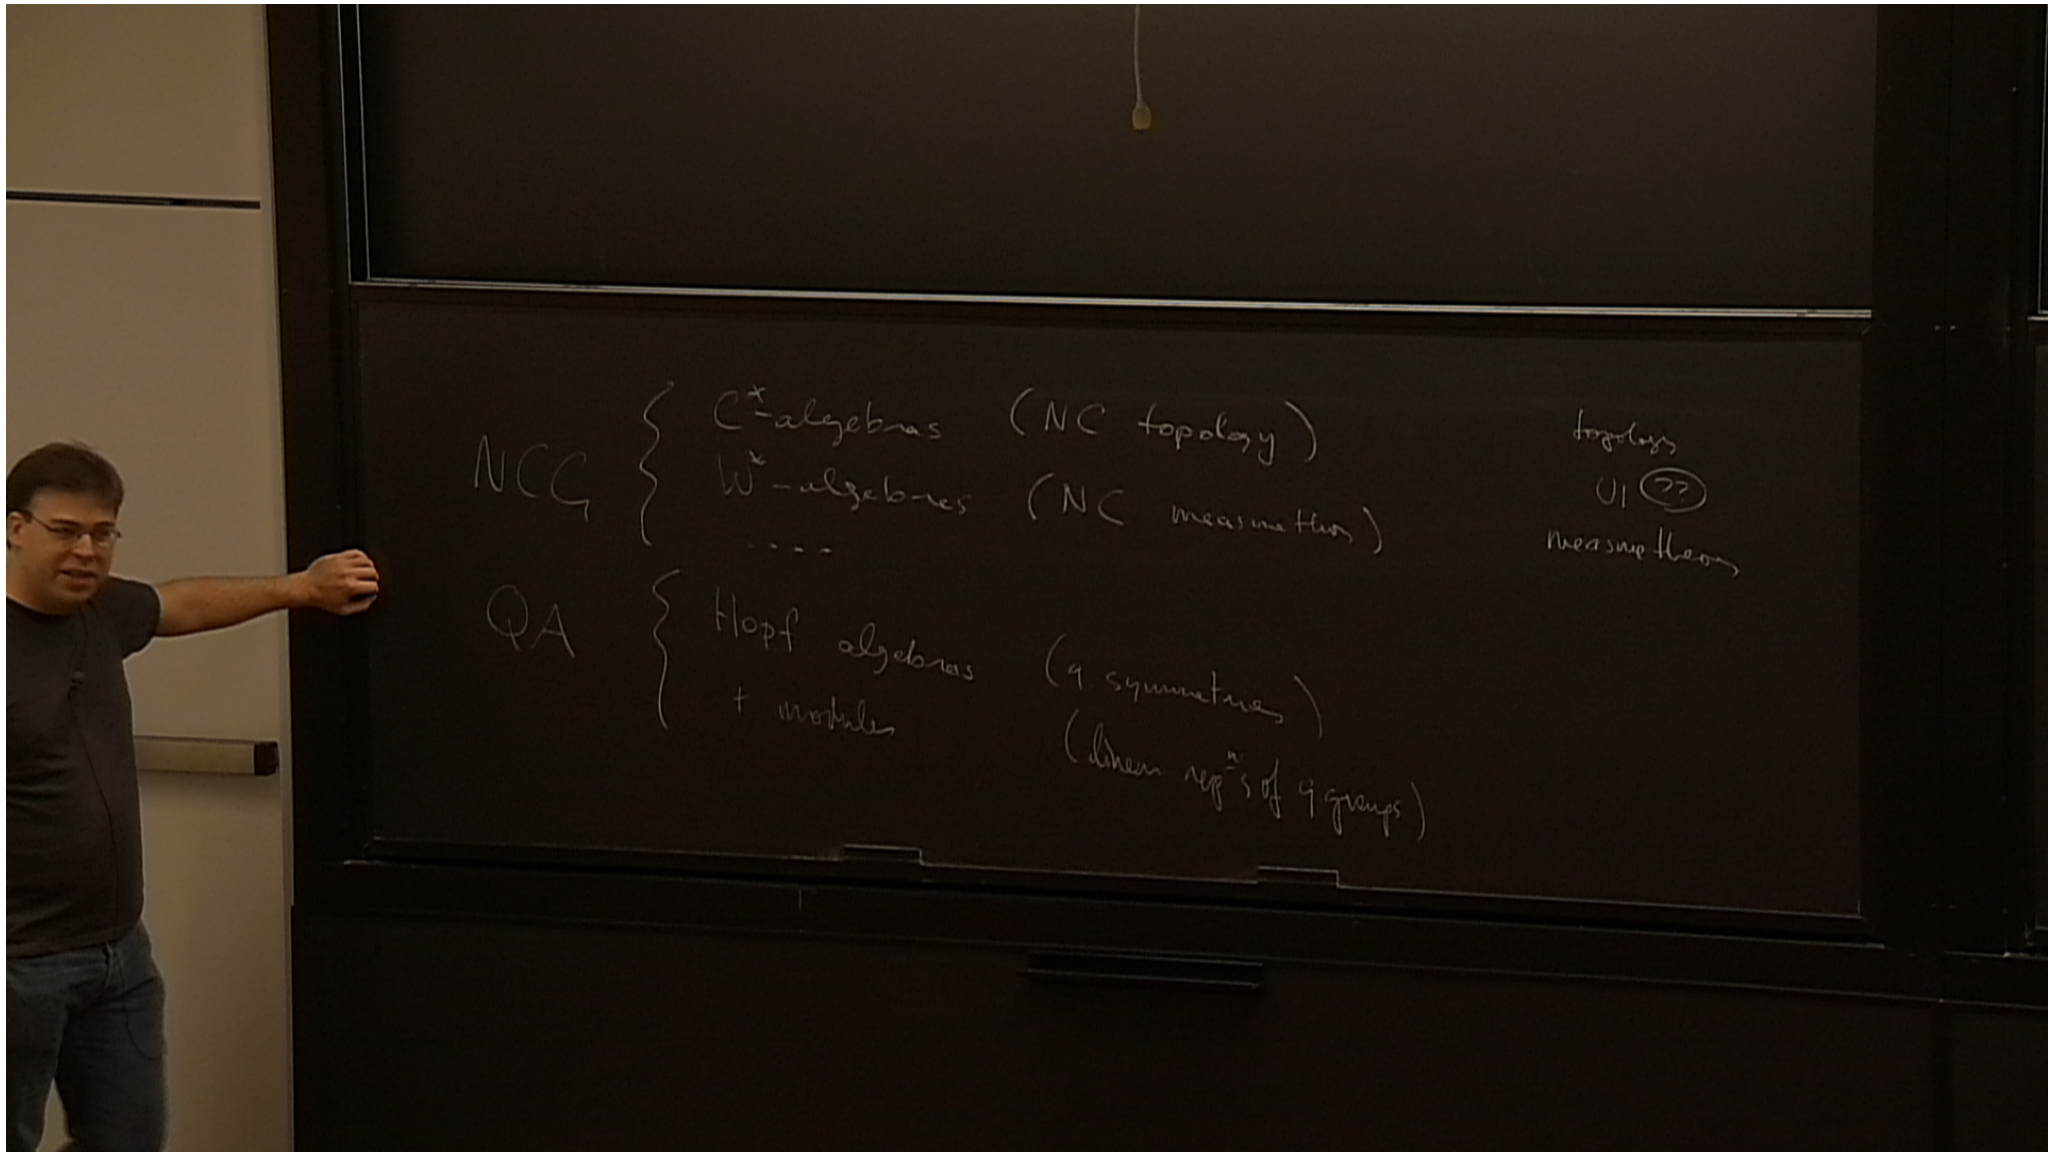 NCG { C*-algebras (NC topology)
W*-algebras (NC measure theory)
....
QA { Hopf algebras (q. symmetries)
+ modules (linear repⁿs of q groups)
topology
∪| ??
measure theory